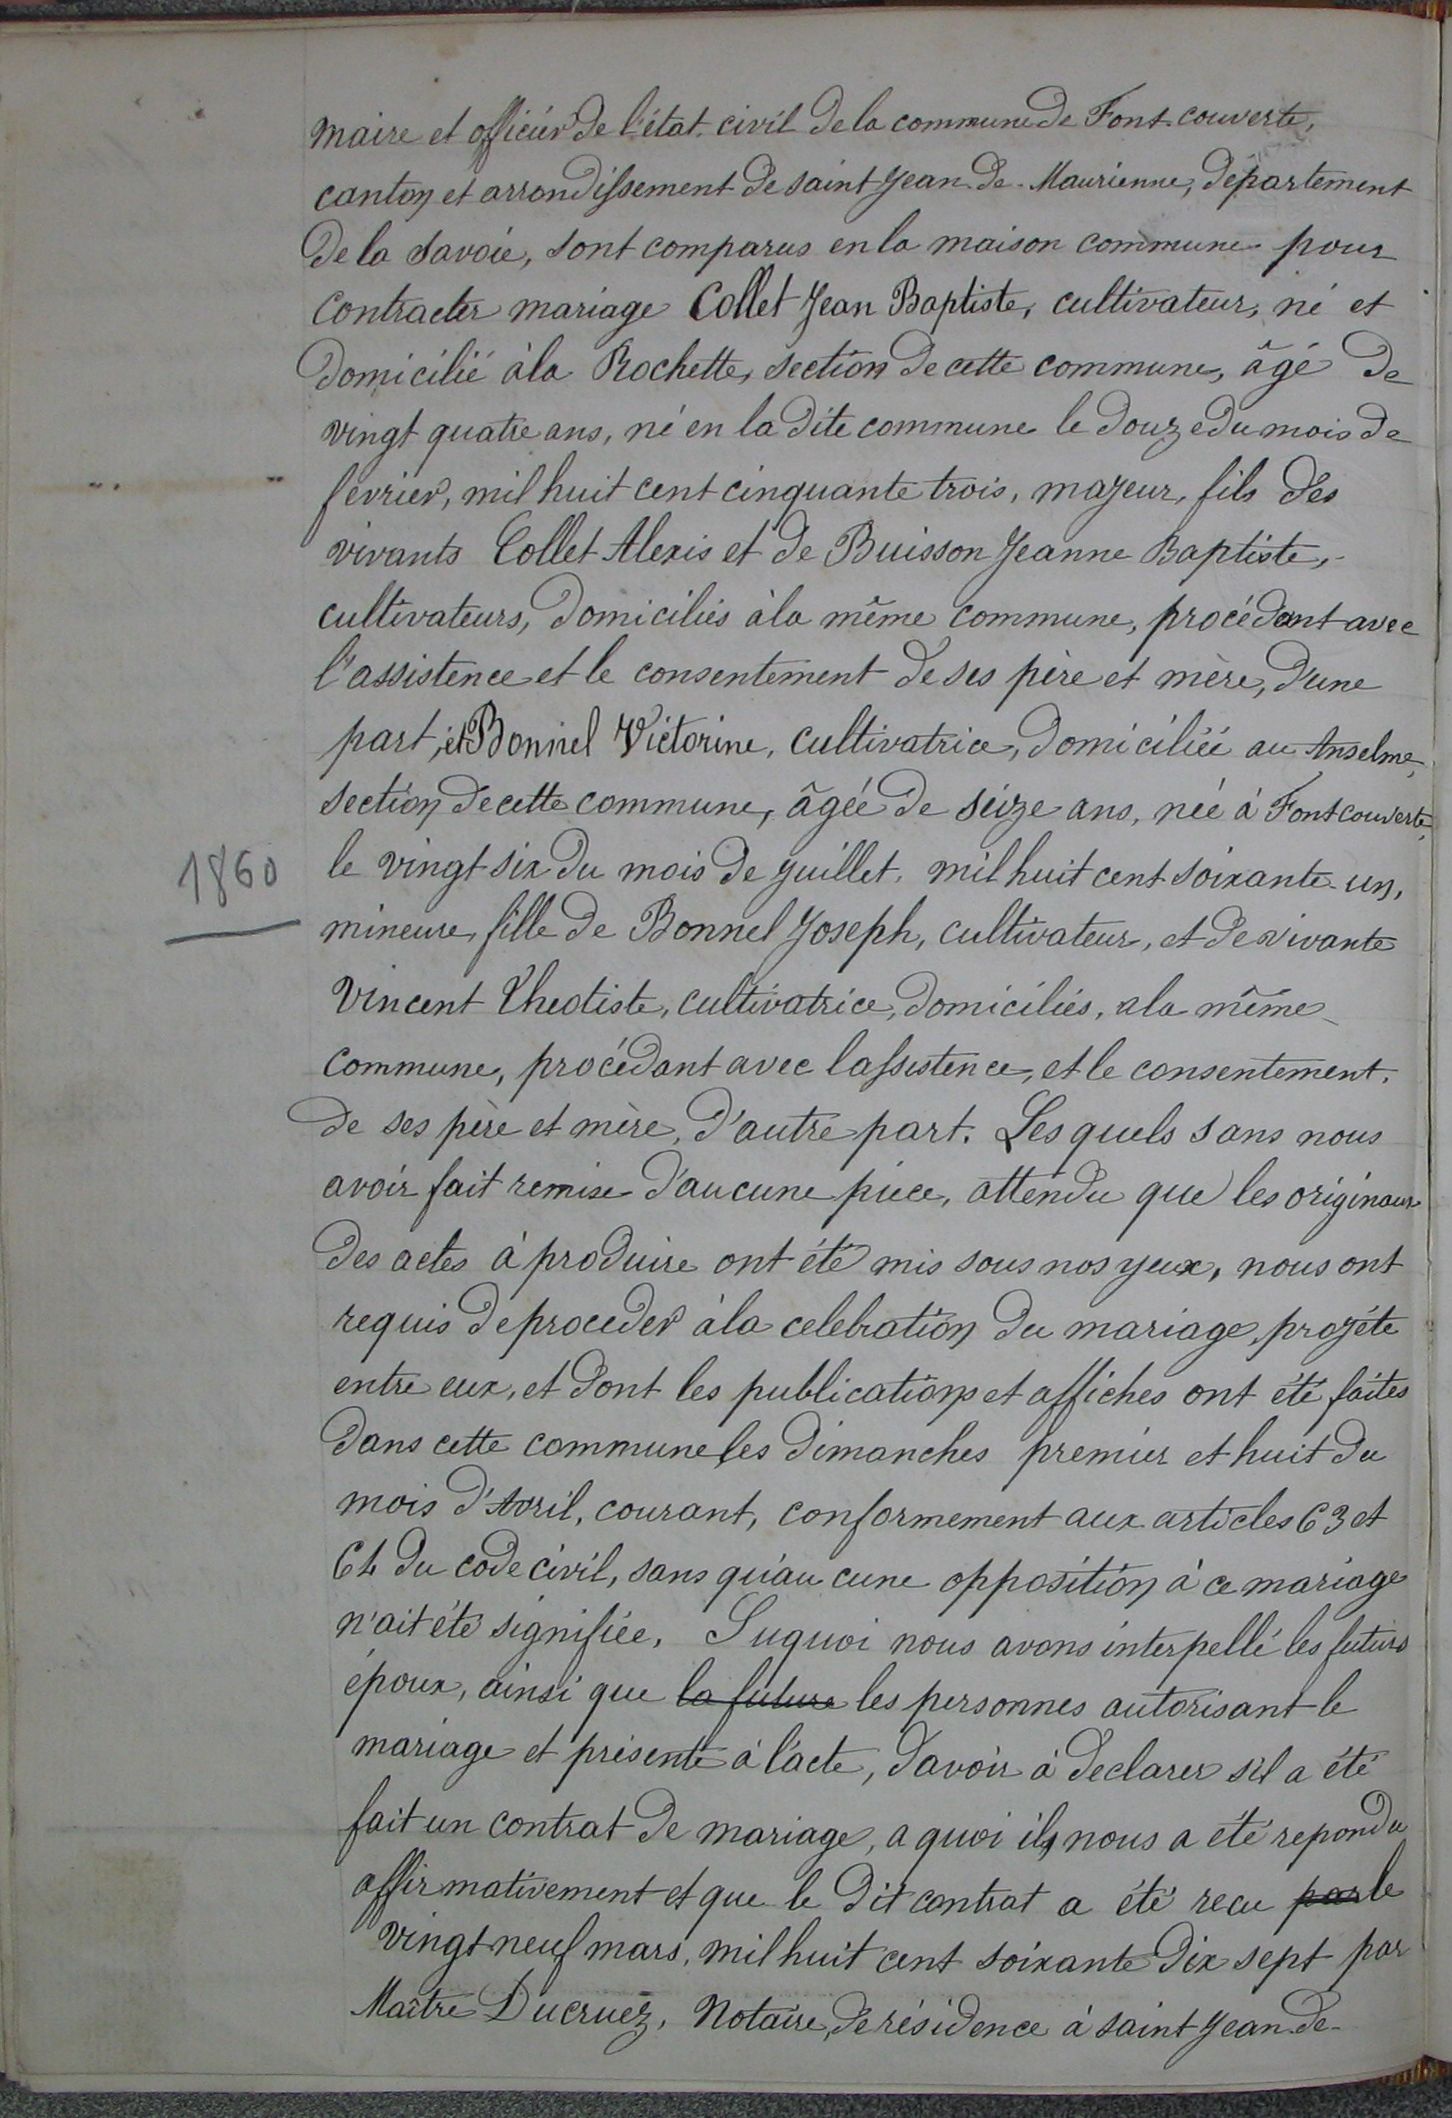 maire et officier de l'état civil de la commune de Font-couverte,
canton et arrondissement de saint Jean-de-Maurienne, département
de la Savoie, sont comparus en la maison commune pour
contracter mariage Collet Jean Baptiste, cultivateur, né et
domicilié à la Rochette, section de cette commune, âgé de
vingt quatre ans, né en la dite commune le douze du mois de
février, mil huit cent cinquante trois, majeur, fils des
vivants Collet Alexis et de Buisson Jeanne Baptiste,
cultivateurs, domiciliés à la même commune, procédant avec
l'assistence et le consentement de ses père et mère, d'une
part, et Bonnel Victorine, cultivatrice, domiciliée au Anselme,
section de cette commune, âgée de seize ans, née à Fontcouverte,
1860
le vingt six du mois de juillet, mil huit cent soixante-un,
mineure, fille de Bonnel Joseph, cultivateur, et de vivante
Vincent Theotiste, cultivatrice, domiciliés, a la même
commune, procédant avec l'assistence, et le consentement.
de ses père et mère, d'autre part. Les quels sans nous
avoir fait remise d'aucune pièce, attendu que les originaux
des actes à produire ont été mis sous nos yeux, nous ont
requis de proceder à la celebration du mariage projété
entre eux, et dont les publications et affiches ont été faites
dans cette commune les dimanches premier et huit du
mois d'Avril, courant, conformement aux articles 63 et
64 du code civil, sans qu'aucune opposition à ce mariage
n'ait été signifiée, Suquoi nous avons interpellé les futurs
époux, ainsi que la future les personnes autorisant le
mariage et présente à l'acte, d'avoir à declarer s'il a été
fait un contrat de mariage, a quoi il nous a été repondu
affirmativement et que le dit contrat a été recu par le
vingt neuf mars, mil huit cent soixante dix sept par
Maître Ducruez, Notaire, de résidence à saint Jean-de-